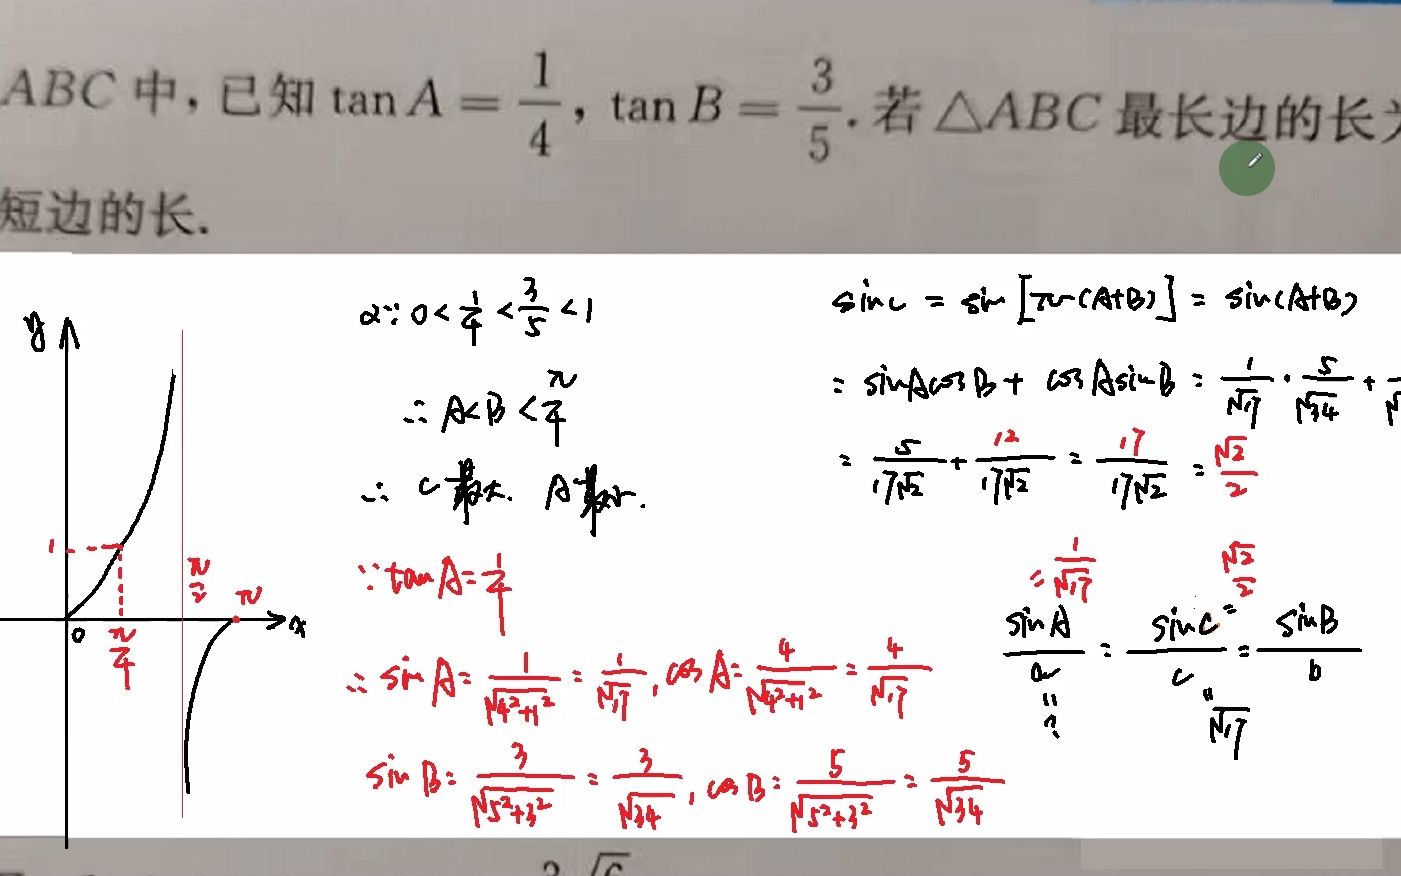 ABC 中,已知 tan A = 1/4, tan B = 3/5. 若 △ABC 最长边的长为
短边的长.
y
1
0
π/4
π/2
π
x
∵ 0 < 1/4 < 3/5 < 1
∴ A < B < π/4
∴ C最大. A最小.
∵ tan A = 1/4
∴ sin A = 1/√(4²+1²) = 1/√17, cos A = 4/√(4²+1²) = 4/√17
sin B = 3/√(5²+3²) = 3/√34, cos B = 5/√(5²+3²) = 5/√34
sin C = sin [π-(A+B)] = sin(A+B)
= sinAcosB + cosAsinB = 1/√17 · 5/√34 +
= 5/17√2 + 12/17√2 = 17/17√2 = √2/2
= 1/√17 √2/2
sinA/a = sinC/c = sinB/b
= ? = √17